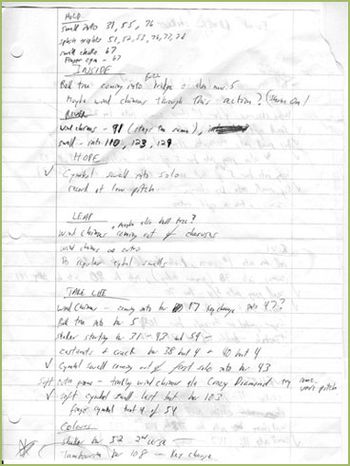 HOLD
swell into 31, 55, 76
splash triplets 51, 52, 53, 76, 77, 78
swell choke 67
Finger gym - 67
INSIDE
Bell tree coming into bridge
Maybe wind chimes through this section?
RIVER
wind chimes - 91 (stays the same),
swell - into 110, 123, 129
HOPE
✓ Cymbal swell into solo
record at low pitch
LEAP
, Maybe also bell tree?
Wind chimes coming out of choruses
wind chimes on outro
Do regular cymbal swells
TAKE LIFE
Wind Chimes - coming into bar 17 Key change into 47?
Bell tree into bar 5
shaker starting bar 31 - 43 and 59 -
castanets + crack bar 38 beat 4 + 40 beat 4
✓ Cymbal swell coming out of first solo into bar 43
Soft intro piano - really wind chimes ala Crazy Diamond
✓ soft cymbal swell last beat bar 103
finger cymbal beat 4 of 54
Colours
shaker bar 52 2nd verse
Tambourine bar 108 - Key change